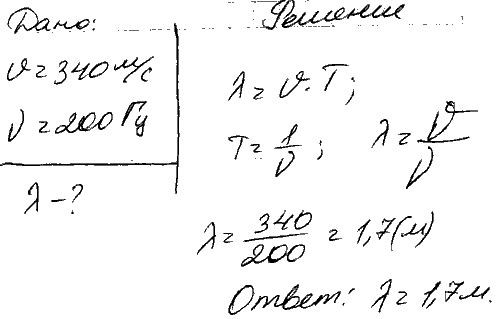 Дано:
υ = 340 м/с
ν = 200 Гц
λ - ?
Решение
λ = υ · T;
T = 1/ν ; λ = υ/ν
λ = 340/200 = 1,7 (м)
Ответ: λ = 1,7 м.